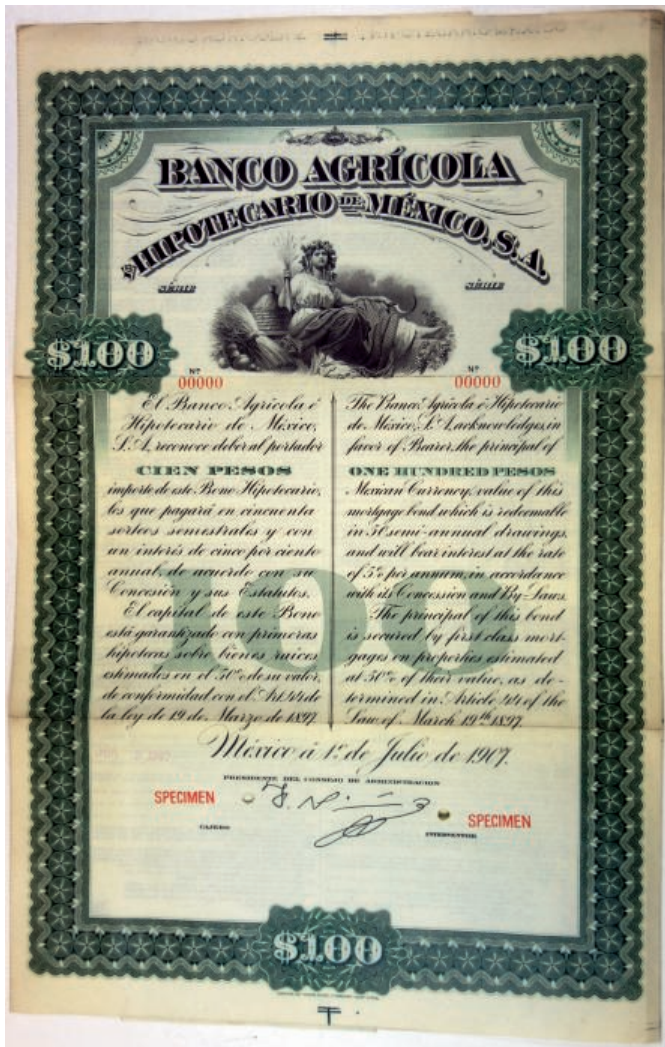 BANCO AGRÍCOLA
É HIPOTECARIO DE MÉXICO, S.A.
SÉRIE
SÉRIE
$100
$100
Nº
00000
Nº
00000
El Banco Agrícola é
Hipotecario de México,
S. A. reconoce deber al portador
CIEN PESOS
importe de este Bono Hipotecario,
los que pagará en cincuenta
sorteos semestrales y con
un interés de cinco por ciento
annual, de acuerdo con su
Concesión y sus Estatutos.
El capital de este Bono
está garantizado con primeras
hipotecas sobre bienes raices
estimados en el 50% de su valor,
de conformidad con el Art. 44 de
la ley de 19 de Marzo de 1897.
The Banco Agrícola é Hipotecario
de México, S. A. acknowledges, in
favor of Bearer, the principal of
ONE HUNDRED PESOS
Mexican Currency, value of this
mortgage bond which is redeemable
in 50 semi-annual drawings,
and will bear interest at the rate
of 5% per annum, in accordance
with its Concession and By-Laws.
The principal of this bond
is secured by first class mort-
gages on properties estimated
at 50% of their value, as de-
termined in Article 44 of the
Law of March 19th 1897.
México á 1º de Julio de 1907.
PRESIDENTE DEL CONSEJO DE ADMINISTRACION
SPECIMEN
SPECIMEN
CAJERO
INTERVENTOR
$100